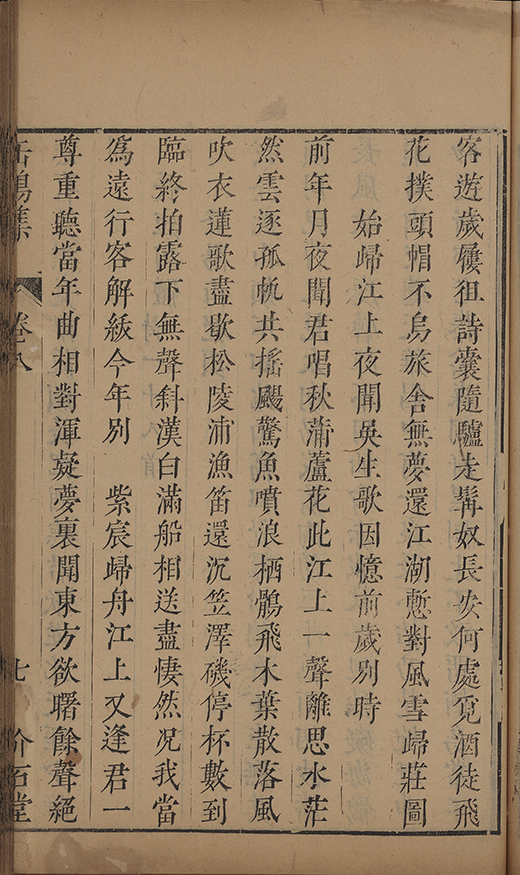 客遊歲屢徂詩囊隨驢走髯奴長安何處覓酒徒飛
花撲頭帽不烏旅舍無夢還江湖慙對風雪歸莊圖
始歸江上夜聞吳生歌因憶前歲別時
前年月夜聞君唱秋蒲蘆花此江上一聲離思水茫
然雲逐孤帆共搖颺驚魚噴浪栖鶻飛木葉散落風
吹衣蓮歌盡歇松陵浦漁笛還沉笠澤磯停杯數到
臨終拍露下無聲斜漢白滿船相送盡悽然况我當
為遠行客解紱今年別　紫宸歸舟江上又逢君一
尊重聽當年曲相對渾疑夢裏聞東方欲曙餘聲絕
缶鳴集　卷八　七　介石堂